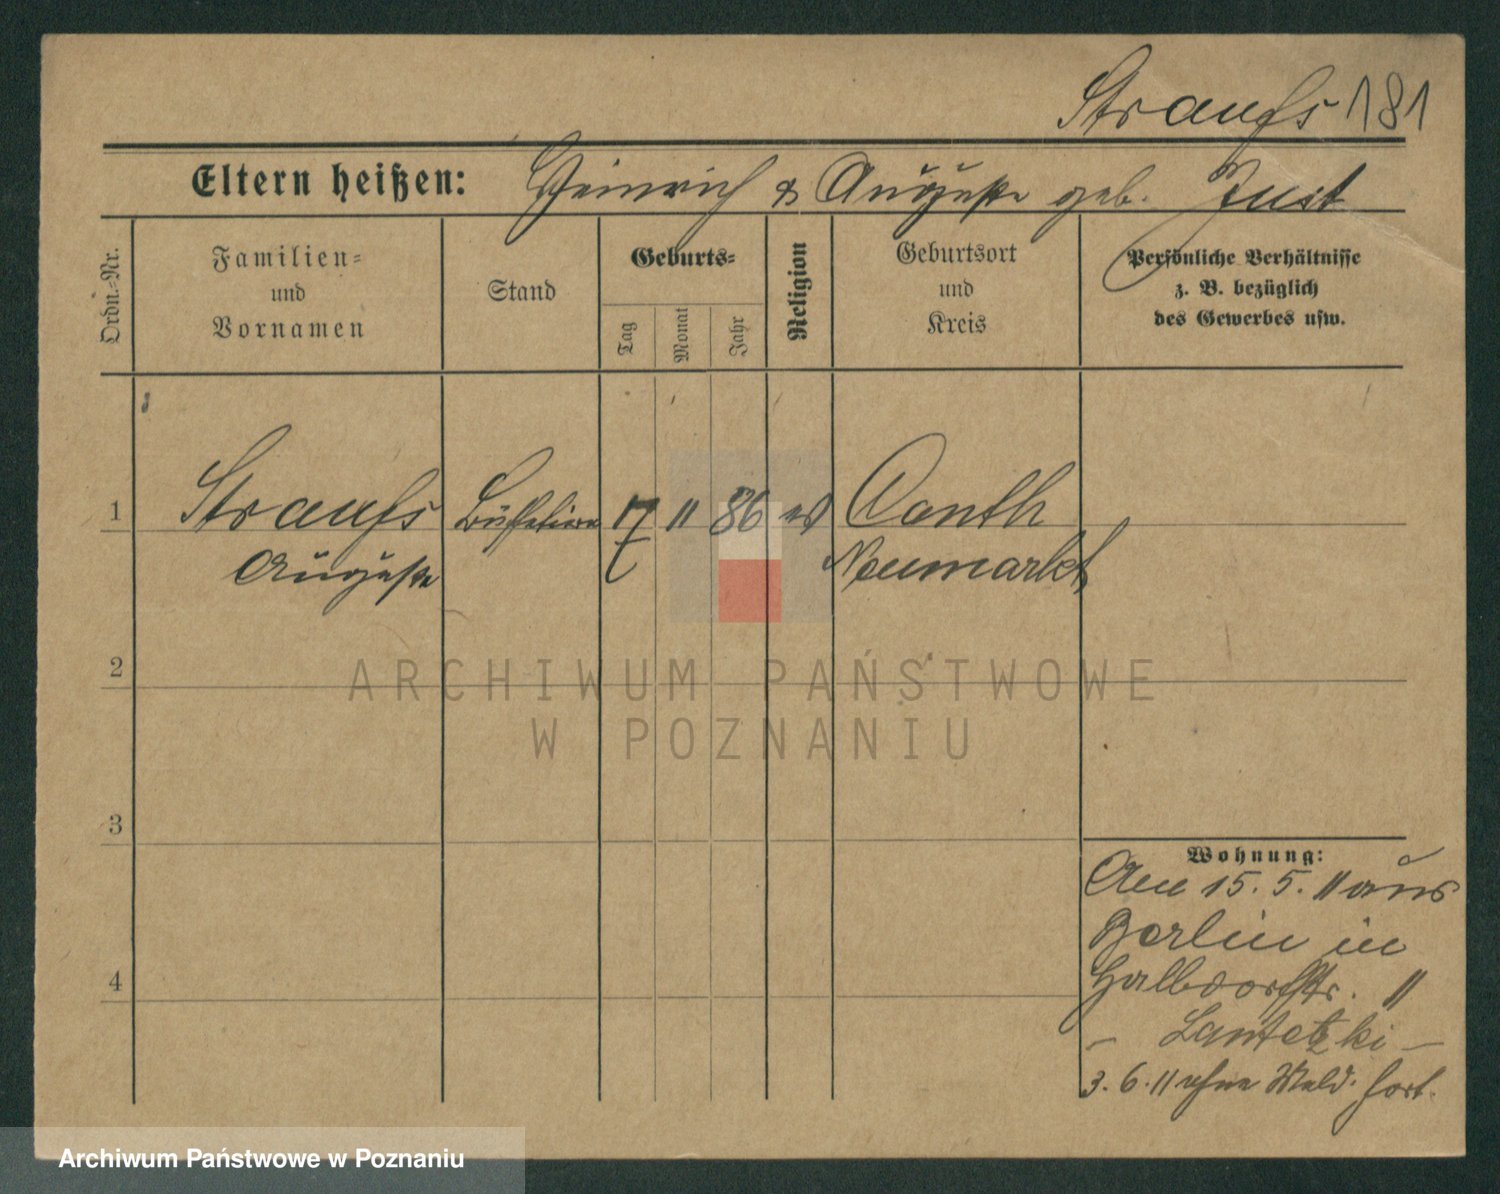 Straufs 181
Eltern heißen: Heinrich & Auguste geb. Just
Ordn.-Nr.
Familien-
und
Vornamen
Stand
Geburts-
Tag
Monat
Jahr
Religion
Geburtsort
und
Kreis
Persönliche Verhältnisse
z. B. bezüglich
des Gewerbes usw.
1 Straufs Büffetiere 17 11 86 ev Canth
Auguste Neumarkt
2
ARCHIWUM PAŃSTWOWE
W POZNANIU
3
Wohnung:
Am 15. 5. 11 aus
Berlin in
Halbdorfstr. 11
4
– Lantetzki –
3. 6. 11 ohne Meld. fort.
Archiwum Państwowe w Poznaniu